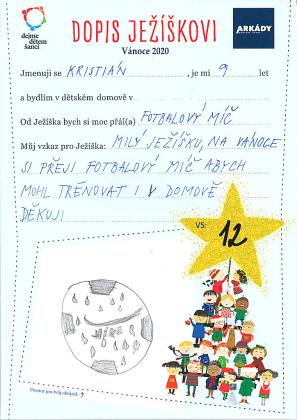 dejme
dětem
šanci
DOPIS JEŽÍŠKOVI
ARKÁDY
Vánoce 2020
Jmenuji se KRISTIÁN, je mi 9 let
a bydlím v dětském domově v
Od Ježíška bych si moc přál(a) FOTBALOVÝ MÍČ
Můj vzkaz pro Ježíška: MILÝ JEŽÍŠKU, NA VÁNOCE
SI PŘEJI FOTBALOVÝ MÍČ ABYCH
MOHL TRÉNOVAT I V DOMOVĚ
DĚKUJI
VS: 12
Prostor pro tvůj obrázek